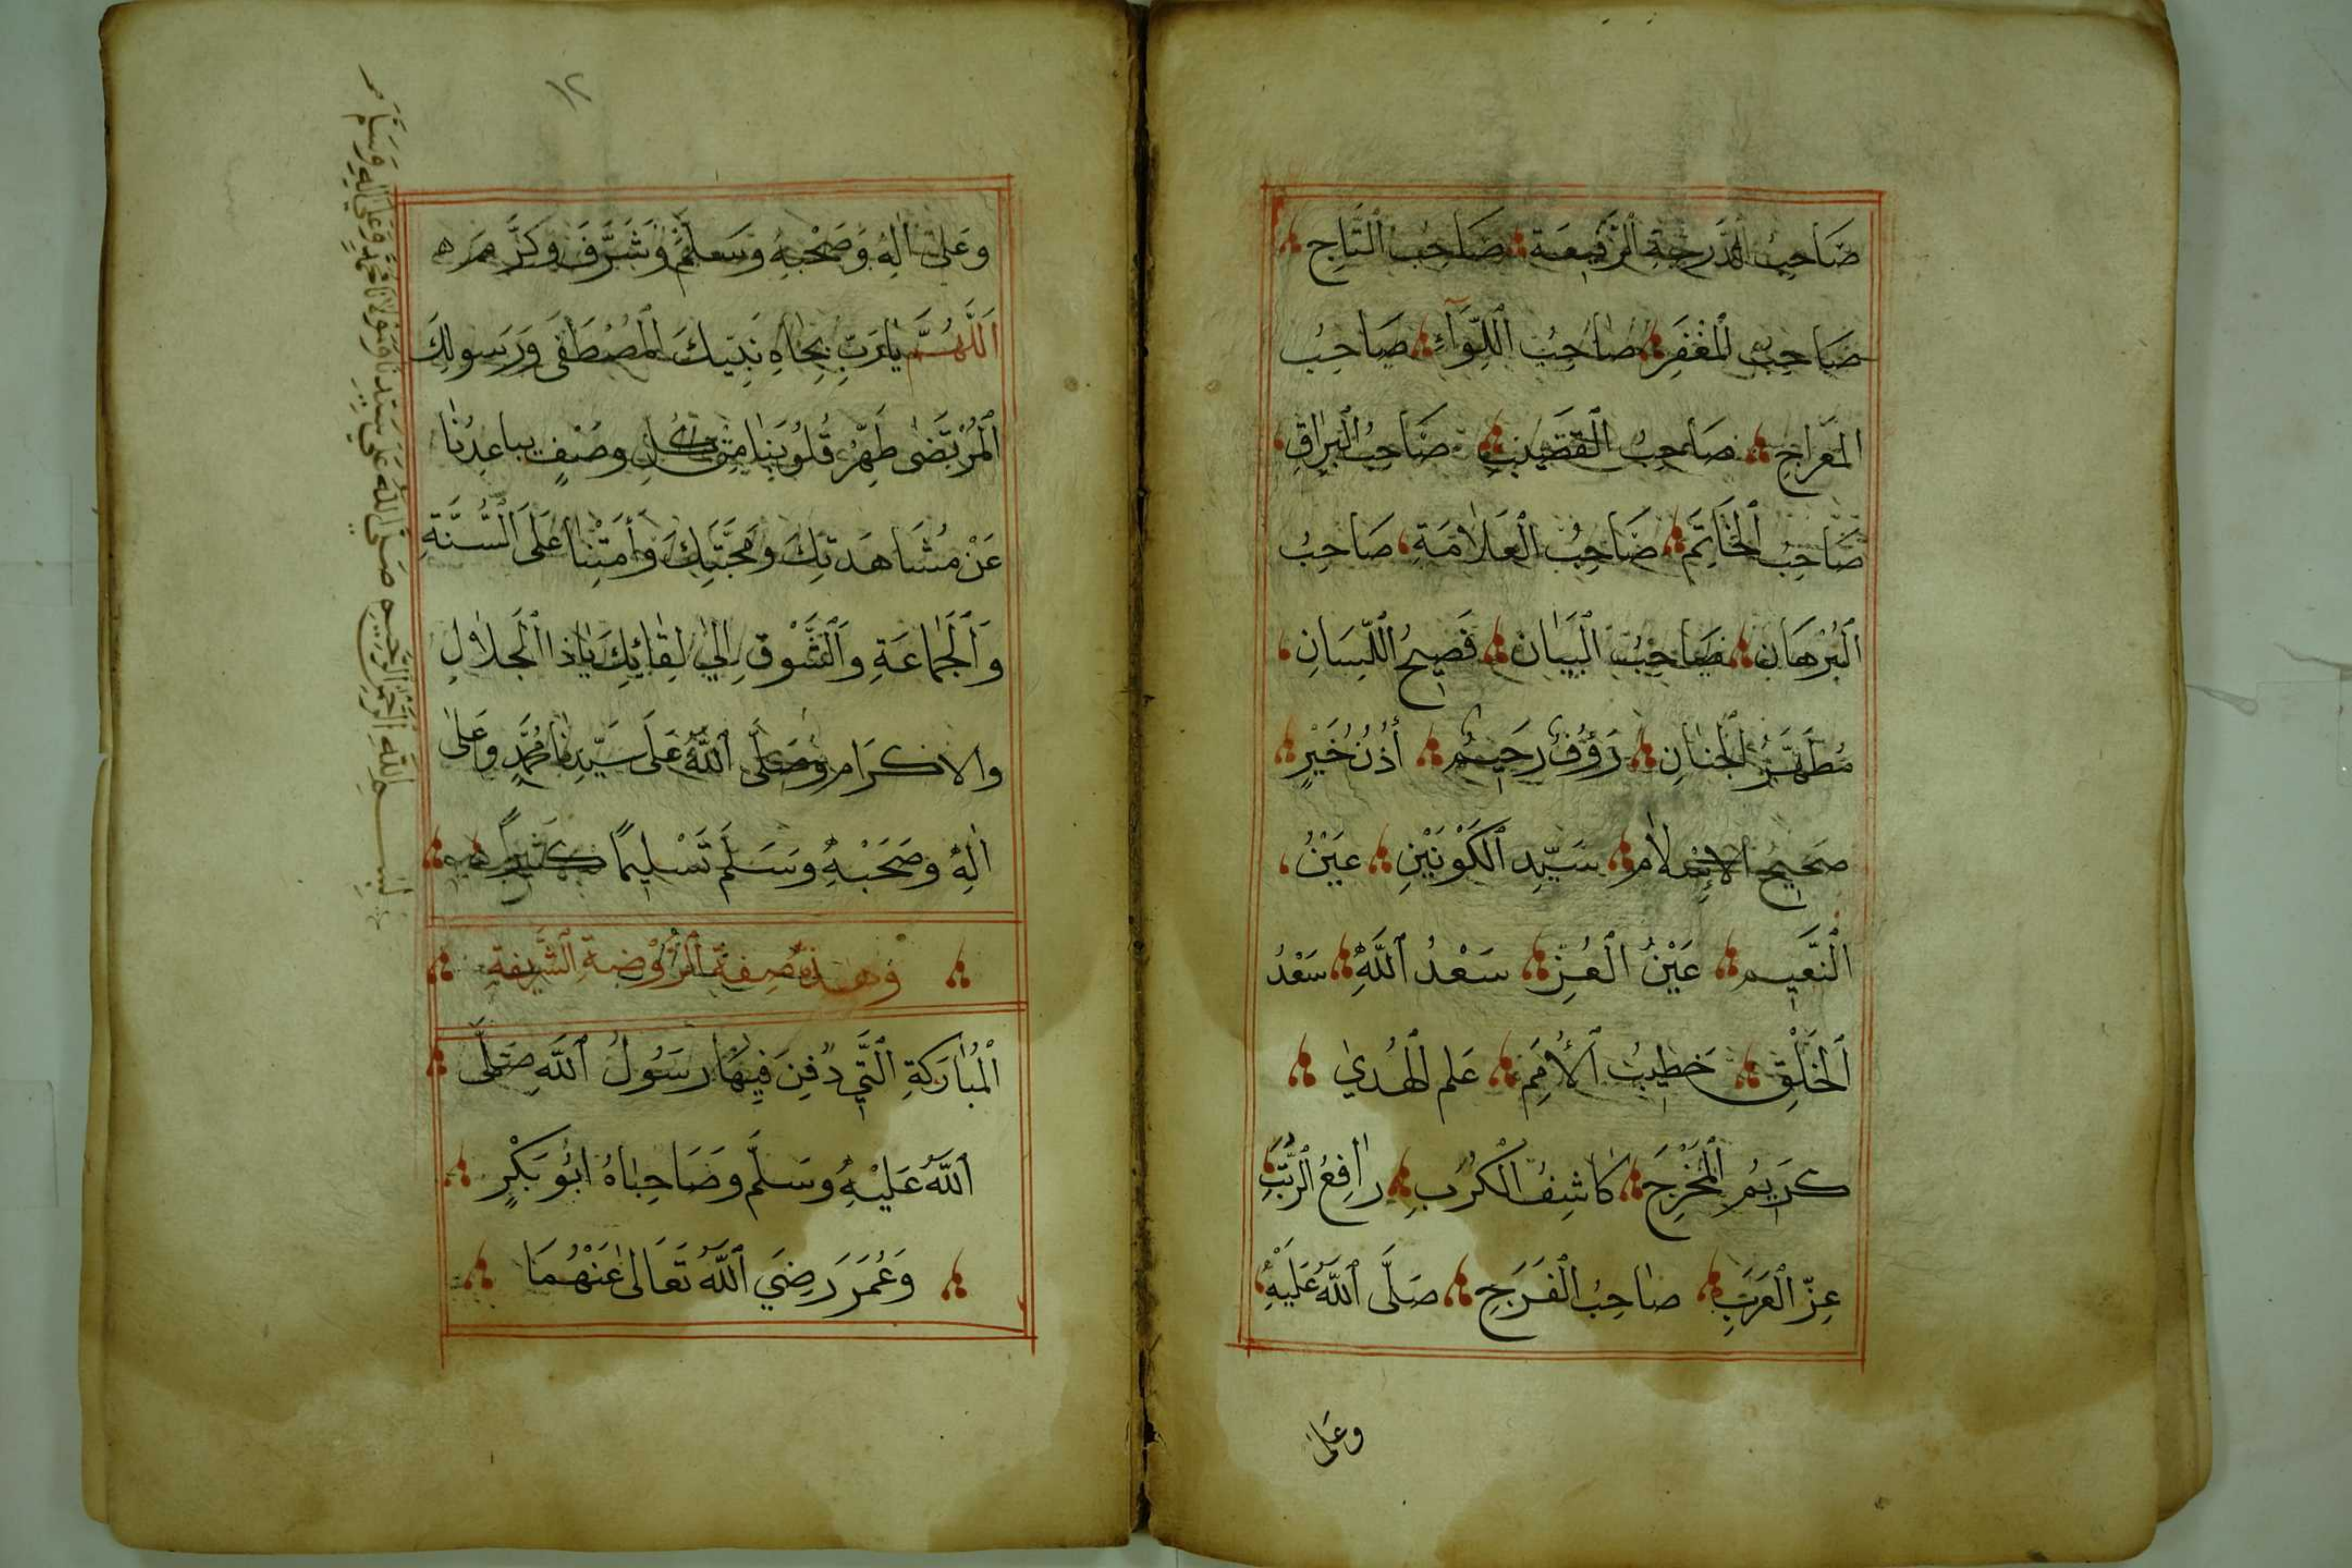 صَاحِبُ الدَّرَجَةِ الرَّفِيعَةِ صَاحِبُ التَّاجِ
صَاحِبُ الْمِغْفَرِ صَاحِبُ اللِّوَآءِ صَاحِبُ
الْمِعْرَاجِ صَاحِبُ الْقَضِيبِ صَاحِبُ الْبُرَاقِ
صَاحِبُ الْخَاتَمِ صَاحِبُ الْعَلَامَةِ صَاحِبُ
الْبُرْهَانِ صَاحِبُ الْبَيَانِ فَصِيحُ اللِّسَانِ
مُطَهَّرُ الْجَنَانِ رَؤُفٌ رَحِيمٌ أُذُنُ خَيْرٍ
صَحِيحُ الْإِسْلَامِ سَيِّدِ الْكَوْنَيْنِ عَيْنُ
النَّعِيمِ عَيْنُ الْعِزِّ سَعْدُ اللَّهِ سَعْدُ
الْخَلْقِ خَطِيبُ الْأُمَمِ عَلَم الْهُدَى
كَرِيمُ الْمَخْرَجِ كَاشِفُ الْكُرَبِ رَافِعُ الرُّتَبِ
عِزّ الْعَرَبِ صَاحِبُ الْفَرَجِ صَلَّى اللَّهُ عَلَيْهِ
وعَلىَ
١٢
وعَلىَ اٰلِهِ وَصَحْبِهِ وَسَلَّمَ وَشَرَّفَ وَكَرَّمَ ه
اَللَّهُمَّ يَارَبِّ بِجَاهِ نَبِيِّكَ الْمُصْطَفَى وَرَسُولِكَ
الْمُرْتَضَى طَهِّرْ قُلُوبَنَا مِنْ كُلِّ وصْفٍ يباعِدُنَا
عَنْ مُشَاهَدَتِكَ وَمَحَبَّتِكَ وَأَمِتْنَا عَلَى السُّنَّةِ
وَالْجَمَاعَةِ وَالشَّوْقِ إِلَي لِقَائِكَ يَاذَا الْجَلَالِ
والاكرَام وَصَلَّى اللَّهُ عَلَى سَيِّدِنَا مُحَمَّدٍ وَعَلَى
اٰلِهِ وَصَحْبِهِ وَسَلَّمَ تَسْلِيمًا كَثِيرًا
وَهذه صِفَةُ الرَّوْضَةِ الشَّرِيفَةِ
الْمُبَارَكَةِ الَّتِي دُفِنَ فِيهَا رَسُولُ اللَّهِ صَلَّى
اللَّهُ عَلَيْهِ وَسَلَّمَ وَصَاحِبَاهُ ابُو بَكْرٍ
وَعُمَرَ رَضِيَ اللَّهُ تَعَالَى عَنْهُمَا
بِسْمِ اللَّهِ الرَّحْمَنِ الرَّحِيمِ صَلَّى اللَّهُ عَلَى سَيِّدِنَا وَمَوْلَانَا مُحَمَّدٍ وَعَلَى اٰلِهِ وَسَلَّمَ